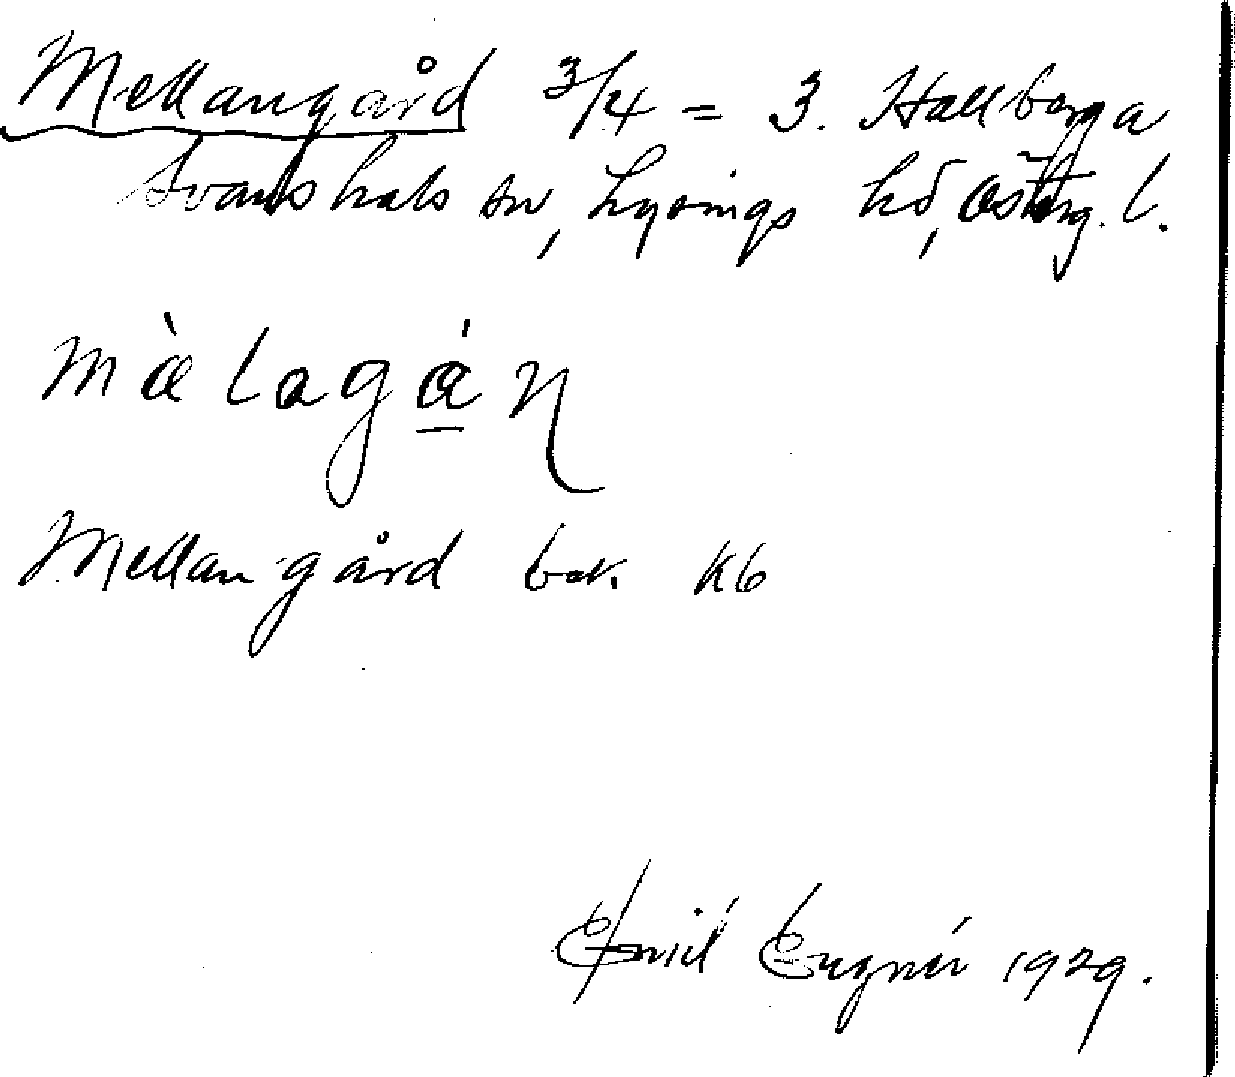 Mellangård 3/4 = 3. Hallberga
Svanshals sn, Lysings hd, Östrg. l.
mằlagán
Mellangård bet. Kb
Emil Engnér 1929.